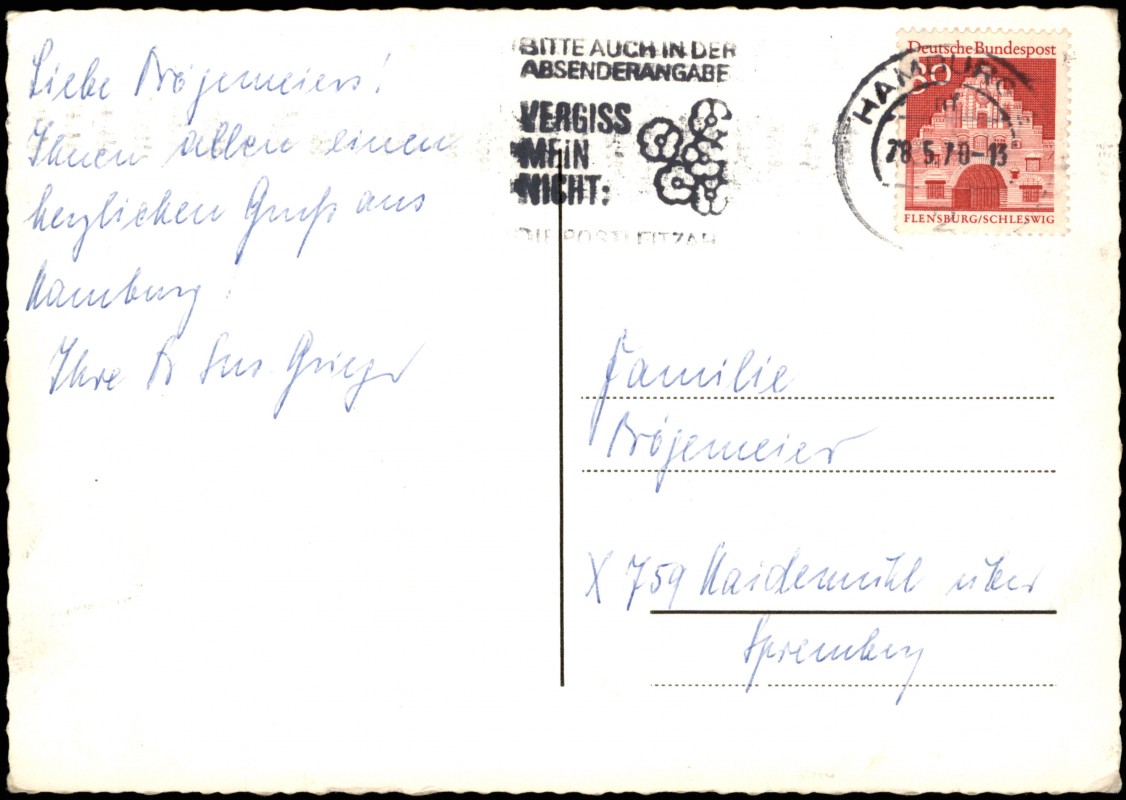 Liebe Drögemeiers!
Ihnen allen einen
herzlichen Gruß aus
Hamburg!
Ihre
BITTE AUCH IN DER
ABSENDERANGABE
VERGISS
MEIN
NICHT:
DIE POSTLEITZAH
HAMBURG
28.5.70-13
2
Deutsche Bundespost
30
FLENSBURG/SCHLESWIG
Familie
Drögemeier
X 759 Haidemühl über
Spremberg